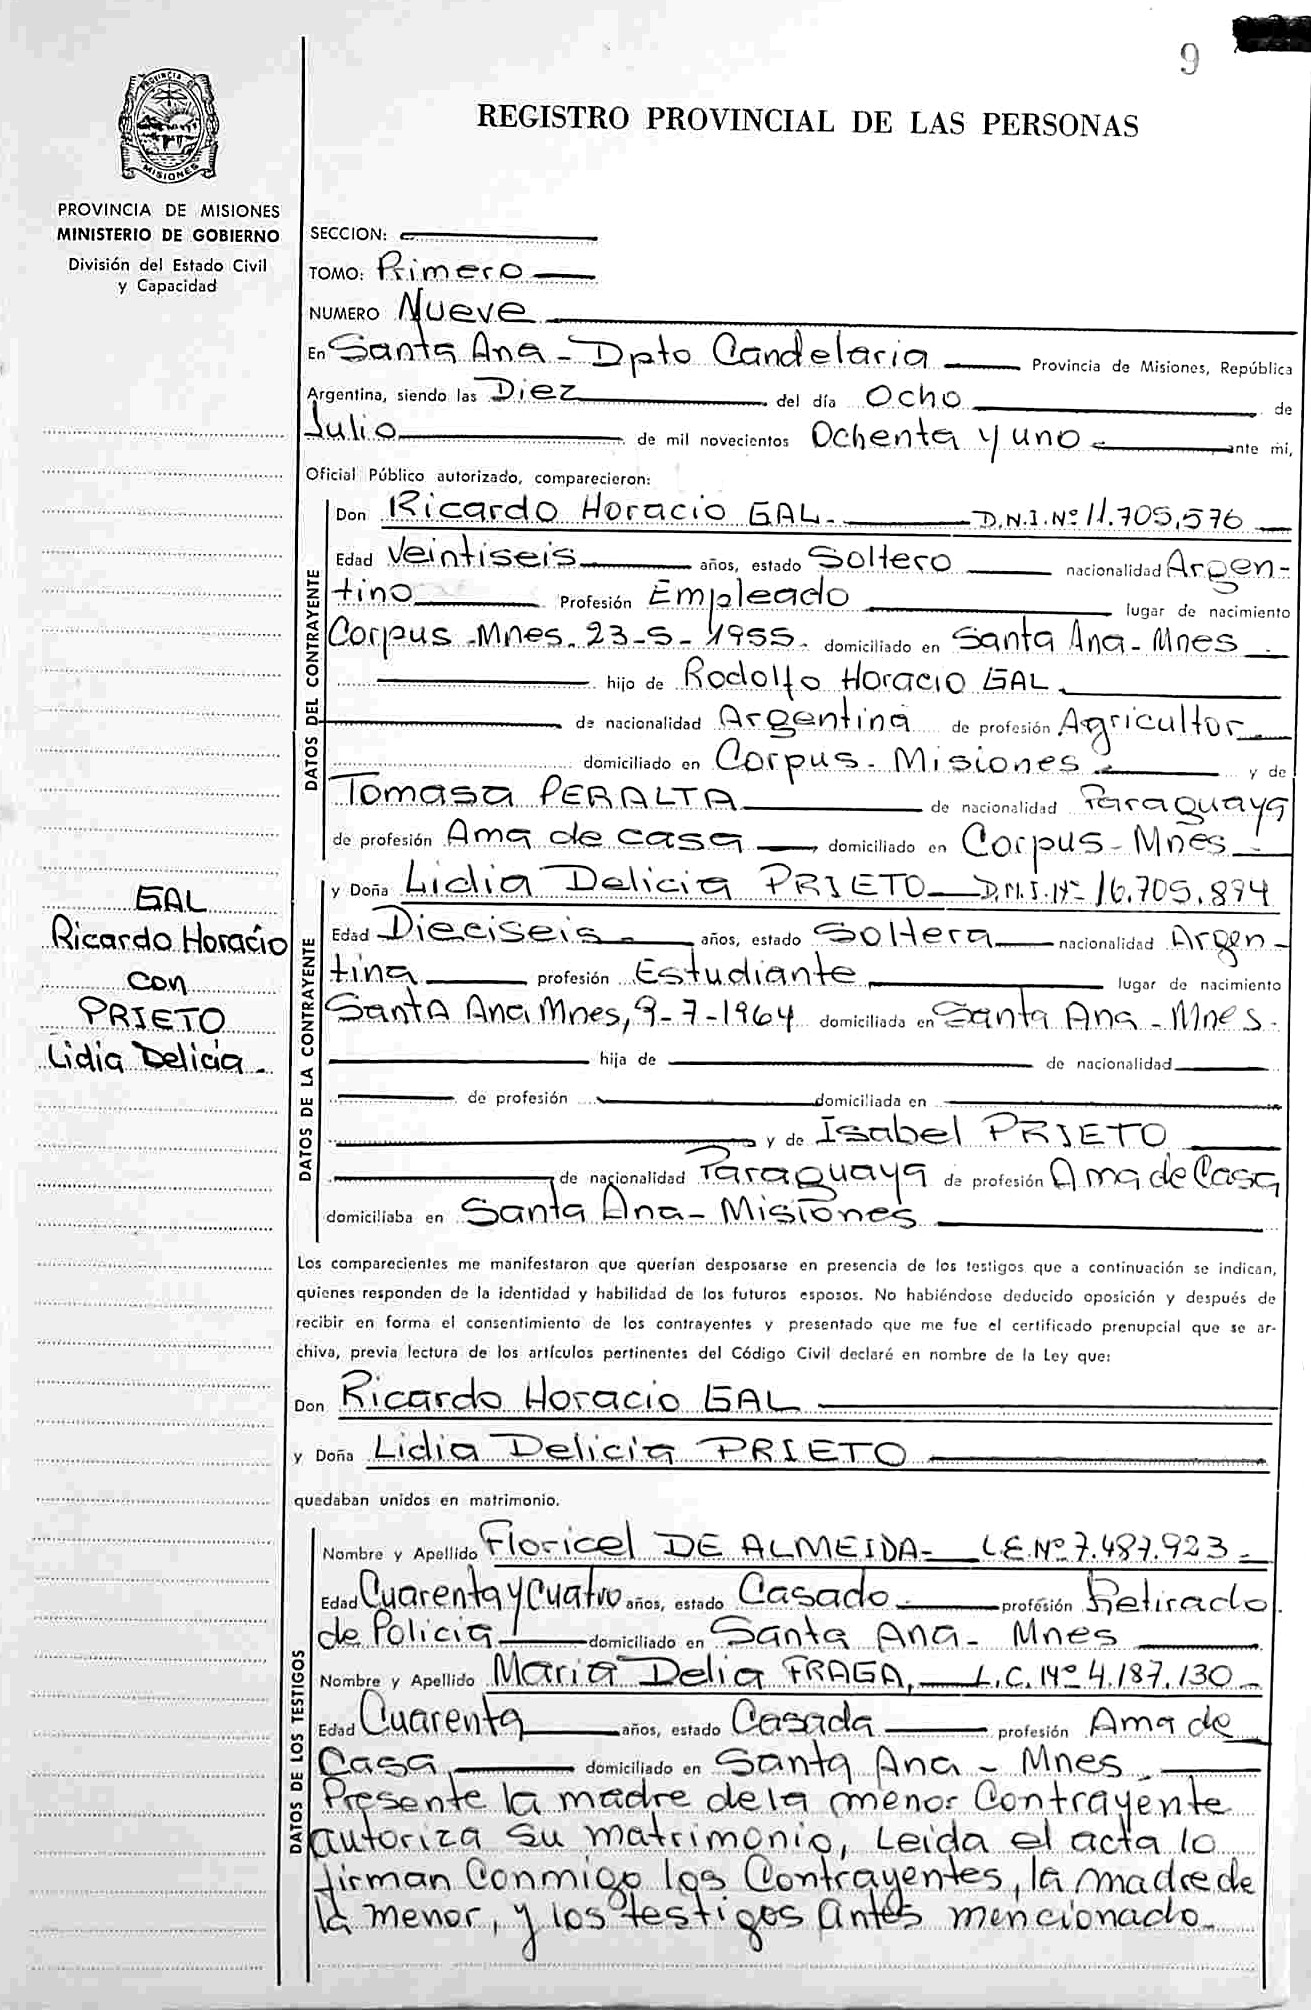 9
REGISTRO PROVINCIAL DE LAS PERSONAS
PROVINCIA DE
MISIONES
PROVINCIA DE MISIONES
MINISTERIO DE GOBIERNO
División del Estado Civil
y Capacidad
SECCION:
TOMO: Primero
NUMERO Nueve
En Santa Ana - Dpto Candelaria Provincia de Misiones, República
Argentina, siendo las Diez del día Ocho de
Julio de mil novecientos Ochenta y uno ante mi,
Oficial Público autorizado, comparecieron:
DATOS DEL CONTRAYENTE
Don Ricardo Horacio GAL. D.N.I. Nº 11.705,576
Edad Veintiseis años, estado Soltero nacionalidad Argen-
tino Profesión Empleado lugar de nacimiento
Corpus - Mnes. 23-5-1955. domiciliado en Santa Ana - Mnes.
hijo de Rodolfo Horacio GAL.
de nacionalidad Argentina de profesión Agricultor
domiciliado en Corpus. Misiones y de
Tomasa PERALTA de nacionalidad Paraguaya
de profesión Ama de casa domiciliado en Corpus - Mnes
GAL
Ricardo Horacio
con
PRIETO
Lidia Delicia.
DATOS DE LA CONTRAYENTE
y Doña Lidia Delicia PRIETO D.N.I. Nº 16.705.894
Edad Dieciseis años, estado Soltera nacionalidad Argen-
tina profesión Estudiante lugar de nacimiento
Santa Ana Mnes, 9-7-1964 domiciliada en Santa Ana - Mnes.
hija de de nacionalidad
de profesión domiciliada en
y de Isabel PRIETO
de nacionalidad Paraguaya de profesión Ama de Casa
domiciliaba en Santa Ana - Misiones
Los comparecientes me manifestaron que querían desposarse en presencia de los testigos que a continuación se indican,
quienes responden de la identidad y habilidad de los futuros esposos. No habiéndose deducido oposición y después de
recibir en forma el consentimiento de los contrayentes y presentado que me fue el certificado prenupcial que se ar-
chiva, previa lectura de los artículos pertinentes del Código Civil declaré en nombre de la Ley que:
Don Ricardo Horacio GAL
y Doña Lidia Delicia PRIETO
quedaban unidos en matrimonio.
DATOS DE LOS TESTIGOS
Nombre y Apellido Floricel DE ALMEIDA - L.E. Nº 7.487.923 -
Edad Cuarenta y Cuatro años, estado Casado profesión Retirado
de Policia domiciliado en Santa Ana - Mnes
Nombre y Apellido Maria Delia FRAGA, L.C. Nº 4.187.130
Edad Cuarenta años, estado Casada profesión Ama de
Casa domiciliado en Santa Ana - Mnes.
Presente la madre de la menor Contrayente
autoriza su matrimonio, Leida el acta lo
firman Conmigo los Contrayentes, la madre de
la menor, y los testigos antes mencionado.